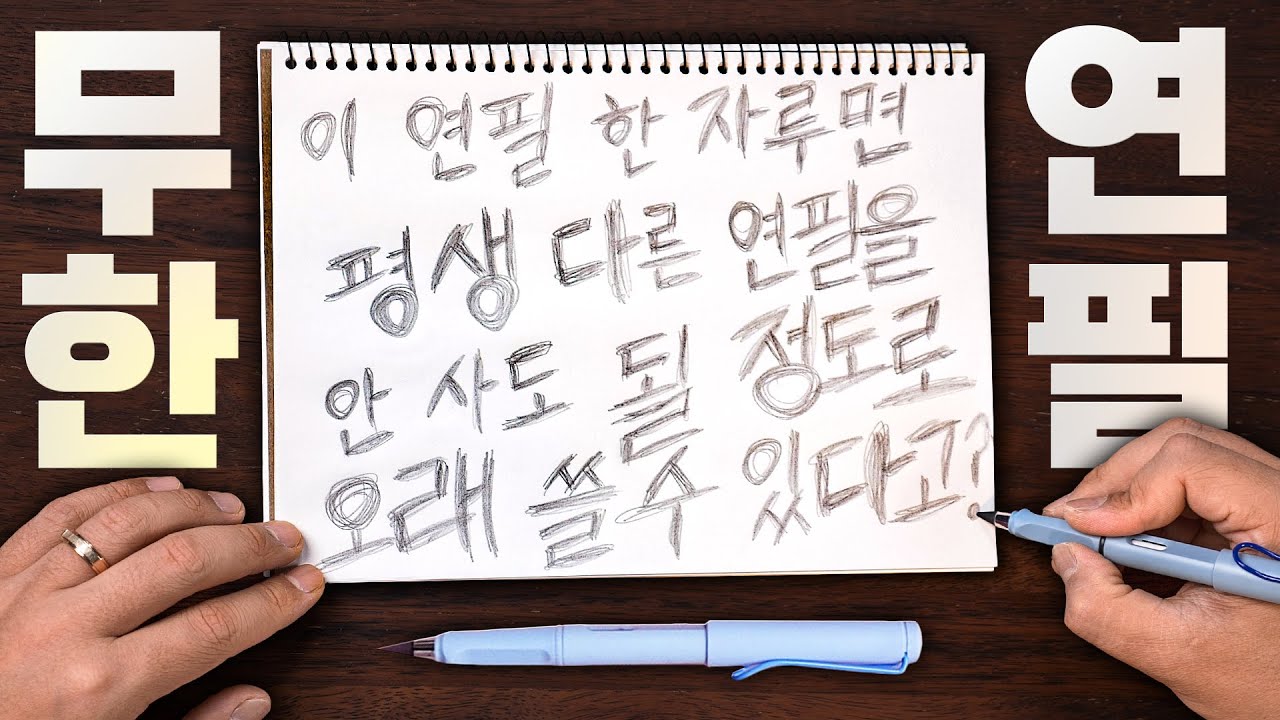 무한
연필
이 연필 한 자루면
평생 다른 연필을
안 사도 될 정도로
오래 쓸 수 있다고?